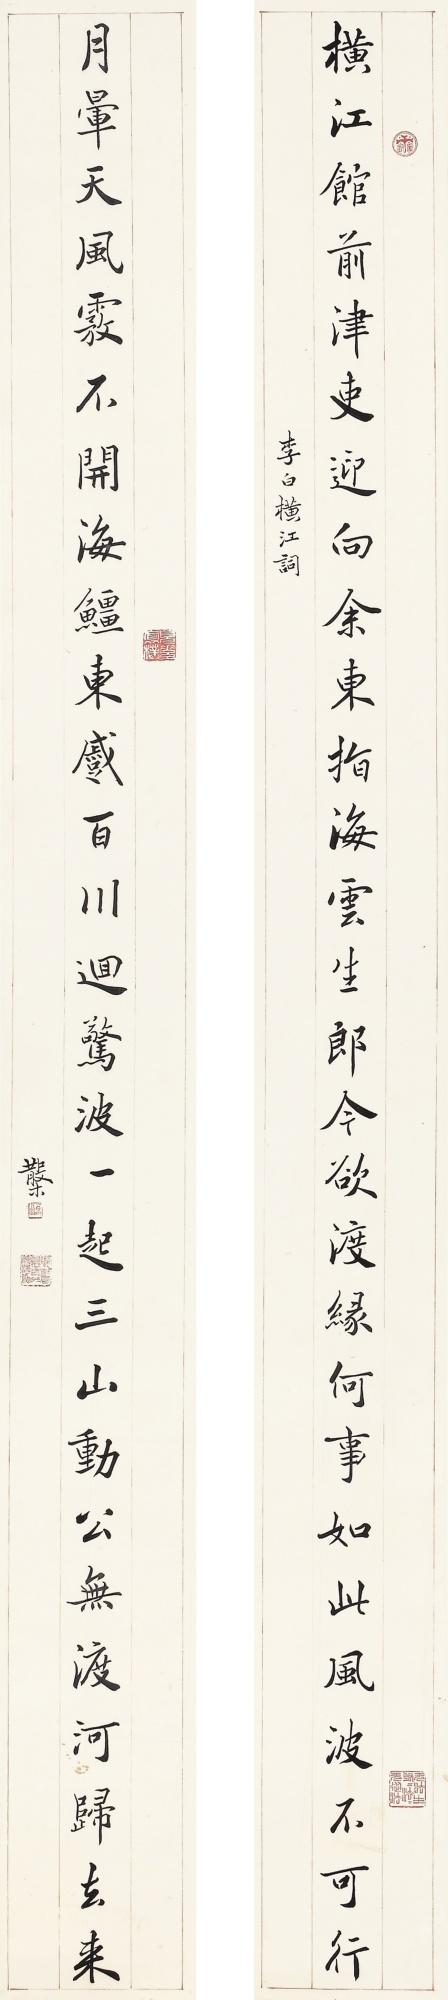 橫江館前津吏迎向余東指海雲生郎今欲渡緣何事如此風波不可行
李白橫江詞
月暈天風霧不開海鱷東蹙百川迴驚波一起三山動公無渡河歸去来